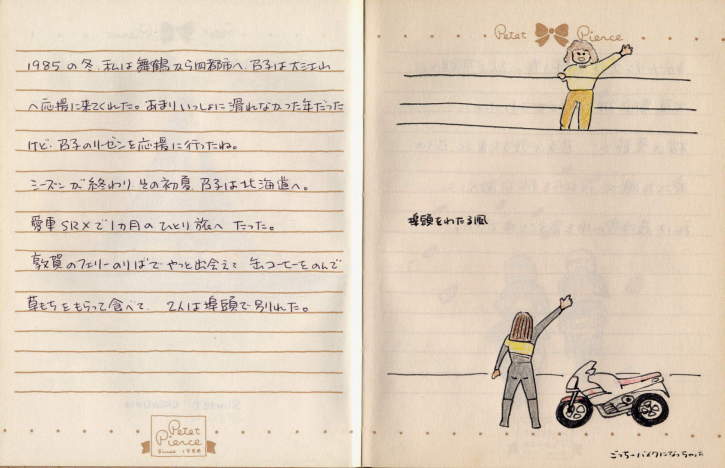 1985の冬、私は舞鶴から四都市へ、乃子は大江山
へ応援に来てくれた。あまりいっしょに滑れなかった年だった
けど、乃子のリーゼンを応援に行ったね。
シーズンが終わり、その初夏、乃子は北海道へ。
愛車SRXで1カ月のひとり旅へ たった。
敦賀のフェリーのりばで やっと出会えて 缶コーヒーをのんで
草もちをもらって食べて、2人は埠頭で別れた。
Petet Pierce
Since 1988
Petet Pierce
埠頭をわたる風
ごっちーバイクになっちゃった